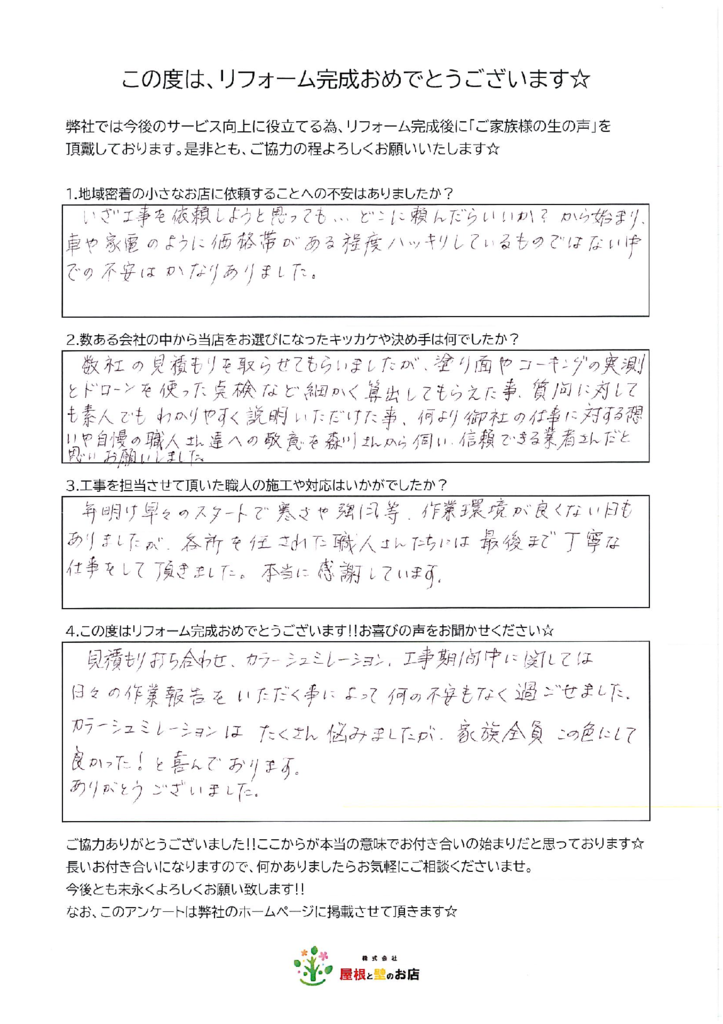 この度は、リフォーム完成おめでとうございます☆
弊社では今後のサービス向上に役立てる為、リフォーム完成後に「ご家族様の生の声」を
頂戴しております。是非とも、ご協力の程よろしくお願いいたします☆
1.地域密着の小さなお店に依頼することへの不安はありましたか？
いざ工事を依頼しようと思っても… どこに頼んだらいいか？ から始まり、
車や家電のように価格帯がある程度ハッキリしているものではない中
での不安はかなりありました。
2.数ある会社の中から当店をお選びになったキッカケや決め手は何でしたか？
数社の見積もりを取らせてもらいましたが、塗り面やコーキングの実測
とドローンを使った点検など細かく算出してもらえた事、質問に対して
も素人でもわかりやすく説明いただけた事、何より御社の仕事に対する想
いや自慢の職人さん達への敬意を森川さんから伺い、信頼できる業者さんだと
思いお願いしました
3.工事を担当させて頂いた職人の施工や対応はいかがでしたか？
年明け早々のスタートで寒さや強風等、作業環境が良くない日も
ありましたが、各所を任された職人さんたちには最後まで丁寧な
仕事をして頂きました。本当に感謝しています。
4.この度はリフォーム完成おめでとうございます!!お喜びの声をお聞かせください☆
見積もり打ち合わせ、カラーシュミレーション、工事期間中に関しては
日々の作業報告をいただく事によって何の不安もなく過ごせました。
カラーシュミレーションは たくさん悩みましたが、家族全員この色にして
良かった！と喜んでおります。
ありがとうございました。
ご協力ありがとうございました!!ここからが本当の意味でお付き合いの始まりだと思っております☆
長いお付き合いになりますので、何かありましたらお気軽にご相談くださいませ。
今後とも末永くよろしくお願い致します!!
なお、このアンケートは弊社のホームページに掲載させて頂きます☆
株式会社
屋根と壁のお店